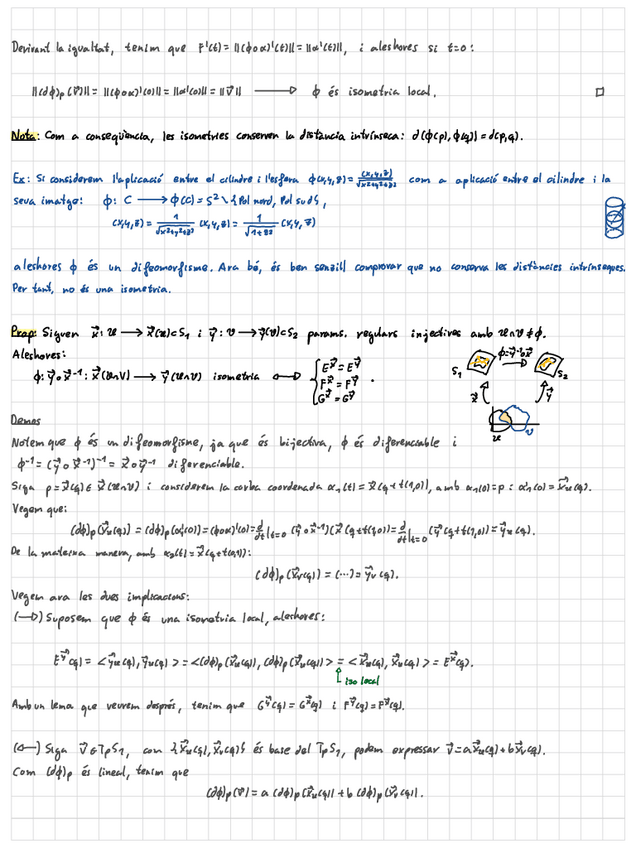 Derivant la igualtat, tenim que F'(t) = ||(ϕ∘α)'(t)|| = ||α'(t)||, i aleshores si t=0:
||(dϕ)p(v⃗)|| = ||(ϕ∘α)'(0)|| = ||α'(0)|| = ||v⃗|| ⟶ ϕ és isometria local. □
Nota: Com a conseqüència, les isometries conserven la distància intrínseca: d(ϕ(p), ϕ(q)) = d(p,q).
Ex: Si considerem l'aplicació entre el cilindre i l'esfera ϕ(x,y,z) = (x,y,z)/√(x²+y²+z²) com a aplicació entre el cilindre i la
seva imatge: ϕ: C ⟶ ϕ(C) = S² \ {Pol nord, Pol sud},
(x,y,z) = 1/√(x²+y²+z²) (x,y,z) = 1/√(1+z²) (x,y,z)
aleshores ϕ és un difeomorfisme. Ara bé, és ben senzill comprovar que no conserva les distàncies intrínseques.
Per tant, no és una isometria.
Prop: Siguen x⃗: U ⟶ x⃗(U)⊂S₁ i y⃗: V ⟶ y⃗(V)⊂S₂ params. regulars injectives amb U∩V ≠ ∅.
Aleshores:
ϕ: y⃗∘x⃗⁻¹: x⃗(U∩V) ⟶ y⃗(U∩V) isometria ⟺ { E^x⃗ = E^y⃗ F^x⃗ = F^y⃗ G^x⃗ = G^y⃗ .
S₁ ϕ=y⃗∘x⃗⁻¹ S₂
x⃗ y⃗
U V
Demos
Notem que ϕ és un difeomorfisme, ja que és bijectiva, ϕ és diferenciable i
ϕ⁻¹ = (y⃗∘x⃗⁻¹)⁻¹ = x⃗∘y⃗⁻¹ diferenciable.
Siga p = x⃗(q) ∈ x⃗(U∩V) i considerem la corba coordenada α₁(t) = x⃗(q+t(1,0)), amb α₁(0)=p i α₁'(0) = x⃗u(q).
Vegem que:
(dϕ)p(x⃗u(q)) = (dϕ)p(α₁'(0)) = (ϕ∘α)'(0) = d/dt|t=0 (y⃗∘x⃗⁻¹)(x⃗(q+t(1,0))) = d/dt|t=0 (y⃗(q+t(1,0))) = y⃗u(q).
De la mateixa manera, amb α₂(t) = x⃗(q+t(0,1)):
(dϕ)p(x⃗v(q)) = (···) = y⃗v(q).
Vegem ara les dues implicacions:
(⟶) Suposem que ϕ és una isometria local, aleshores:
E^y⃗(q) = <y⃗u(q), y⃗u(q)> = <(dϕ)p(x⃗u(q)), (dϕ)p(x⃗u(q))> = <x⃗u(q), x⃗u(q)> = E^x⃗(q).
iso local
Amb un lema que veurem després, tenim que G^y⃗(q) = G^x⃗(q) i F^y⃗(q) = F^x⃗(q).
(⟵) Siga v⃗ ∈ TpS₁, com {x⃗u(q), x⃗v(q)} és base del TpS₁, podem expressar v⃗ = a x⃗u(q) + b x⃗v(q).
Com (dϕ)p és lineal, tenim que
(dϕ)p(v⃗) = a (dϕ)p(x⃗u(q)) + b (dϕ)p(x⃗v(q)).